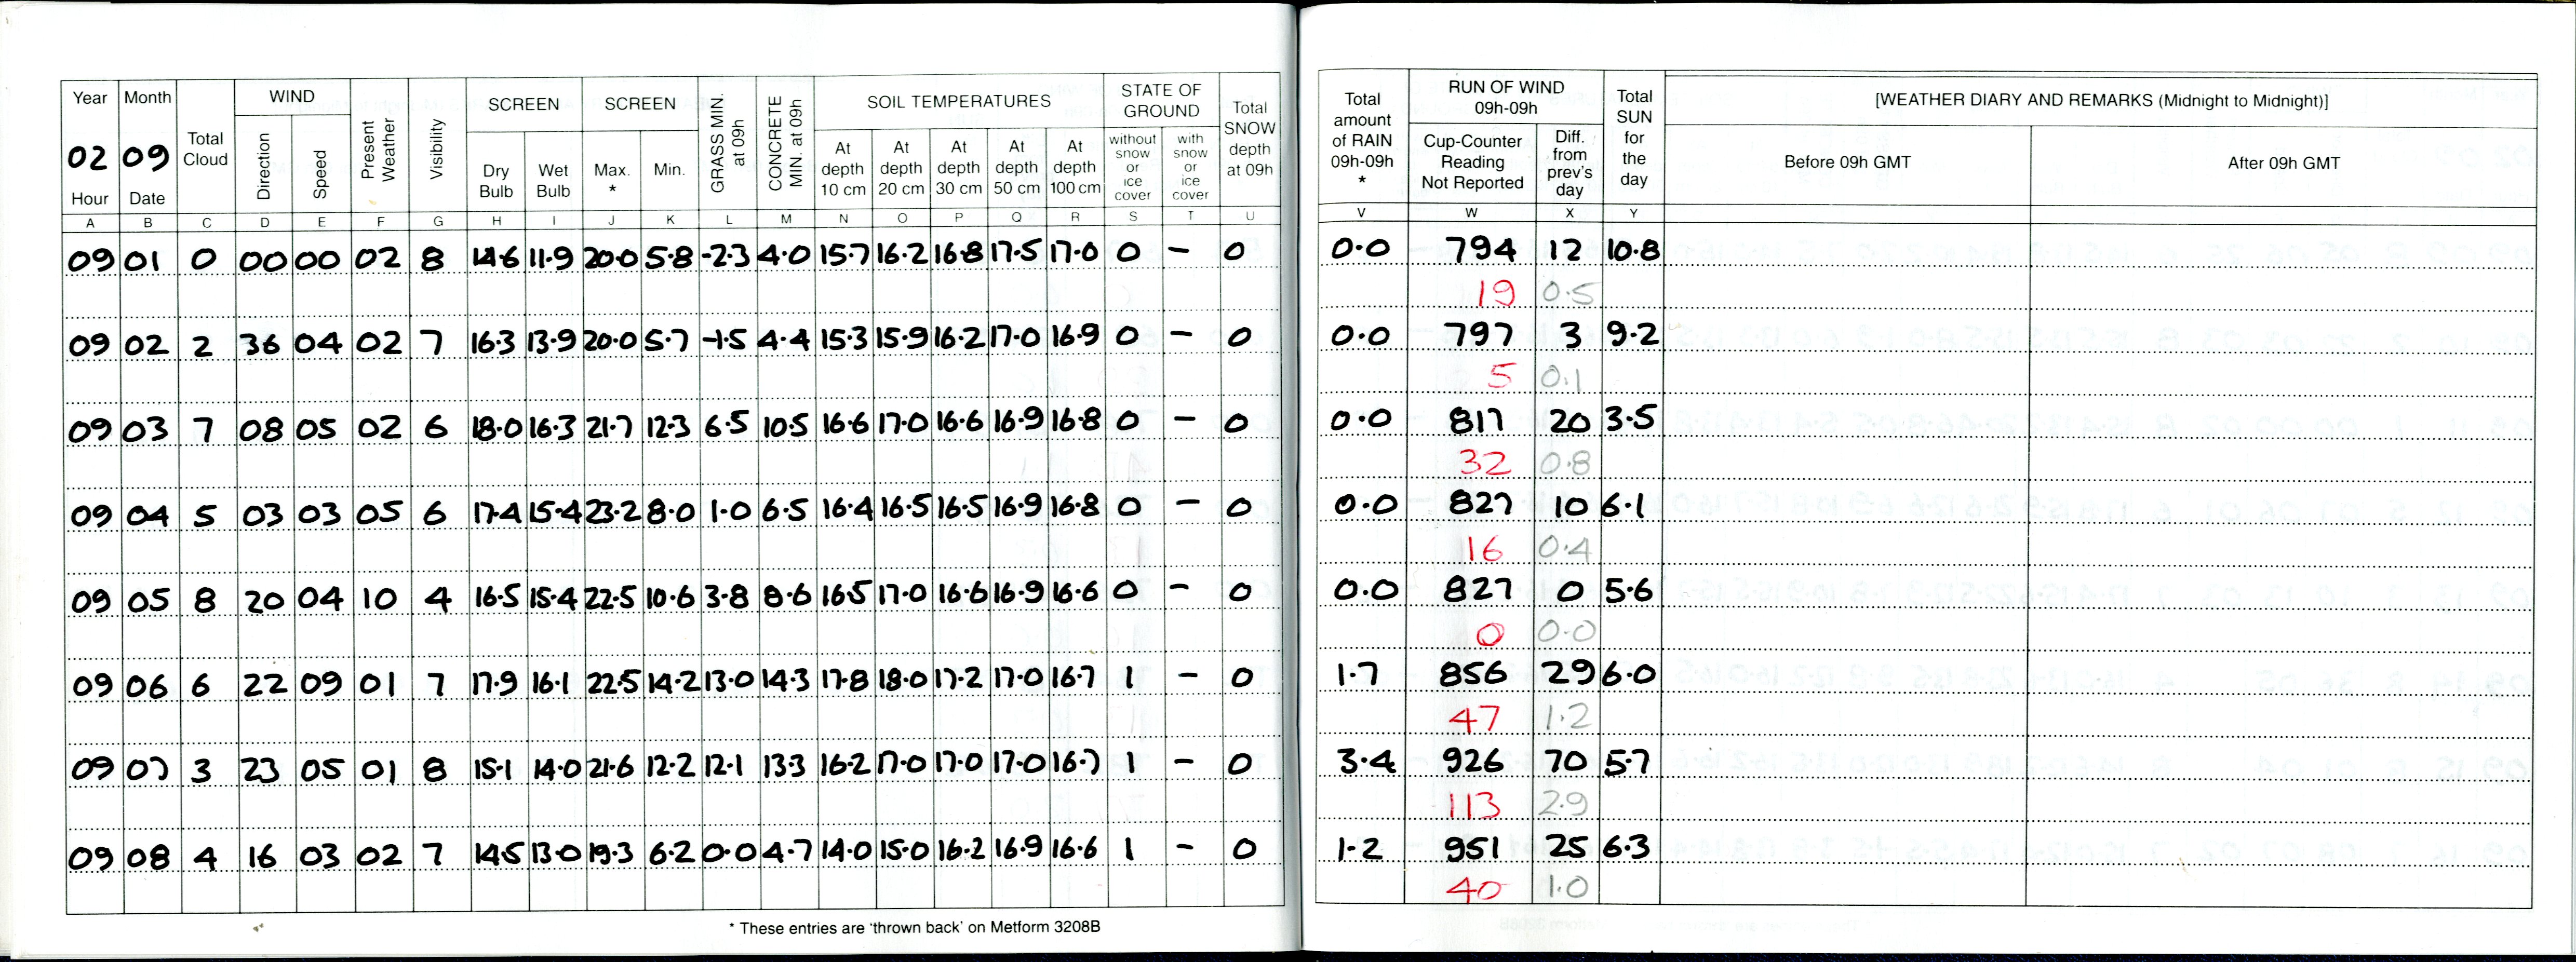 Year Month Total Cloud WIND Present Weather Visibility SCREEN SCREEN GRASS MIN. at 09h CONCRETE MIN. at 09h SOIL TEMPERATURES STATE OF GROUND Total SNOW depth at 09h Total amount of RAIN 09h-09h * RUN OF WIND 09h-09h Total SUN for the day [WEATHER DIARY AND REMARKS (Midnight to Midnight)]
02 09 Direction Speed Dry Bulb Wet Bulb Max. * Min. At depth 10 cm At depth 20 cm At depth 30 cm At depth 50 cm At depth 100 cm without snow or ice cover with snow or ice cover Cup-Counter Reading Not Reported Diff. from prev's day Before 09h GMT After 09h GMT
Hour Date
A B C D E F G H I J K L M N O P Q R S T U V W X Y
09 01 0 00 00 02 8 14.6 11.9 20.0 5.8 -2.3 4.0 15.7 16.2 16.8 17.5 17.0 0 - 0 0.0 794 12 10.8
19 0.5
09 02 2 36 04 02 7 16.3 13.9 20.0 5.7 -1.5 4.4 15.3 15.9 16.2 17.0 16.9 0 - 0 0.0 797 3 9.2
5 0.1
09 03 7 08 05 02 6 18.0 16.3 21.7 12.3 6.5 10.5 16.6 17.0 16.6 16.9 16.8 0 - 0 0.0 817 20 3.5
32 0.8
09 04 5 03 03 05 6 17.4 15.4 23.2 8.0 1.0 6.5 16.4 16.5 16.5 16.9 16.8 0 - 0 0.0 827 10 6.1
16 0.4
09 05 8 20 04 10 4 16.5 15.4 22.5 10.6 3.8 8.6 16.5 17.0 16.6 16.9 16.6 0 - 0 0.0 827 0 5.6
0 0.0
09 06 6 22 09 01 7 17.9 16.1 22.5 14.2 13.0 14.3 17.8 18.0 17.2 17.0 16.7 1 - 0 1.7 856 29 6.0
47 1.2
09 07 3 23 05 01 8 15.1 14.0 21.6 12.2 12.1 13.3 16.2 17.0 17.0 17.0 16.7 1 - 0 3.4 926 70 5.7
113 2.9
09 08 4 16 03 02 7 14.5 13.0 19.3 6.2 0.0 4.7 14.0 15.0 16.2 16.9 16.6 1 - 0 1.2 951 25 6.3
40 1.0
* These entries are 'thrown back' on Metform 3208B